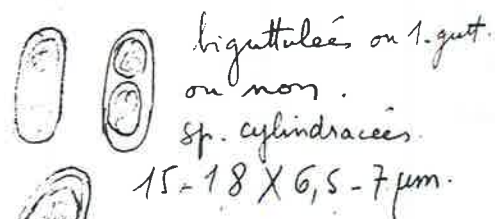 biguttulées ou 1. gutt.
ou non.
sp. cylindracées.
15-18 X 6,5-7 µm.